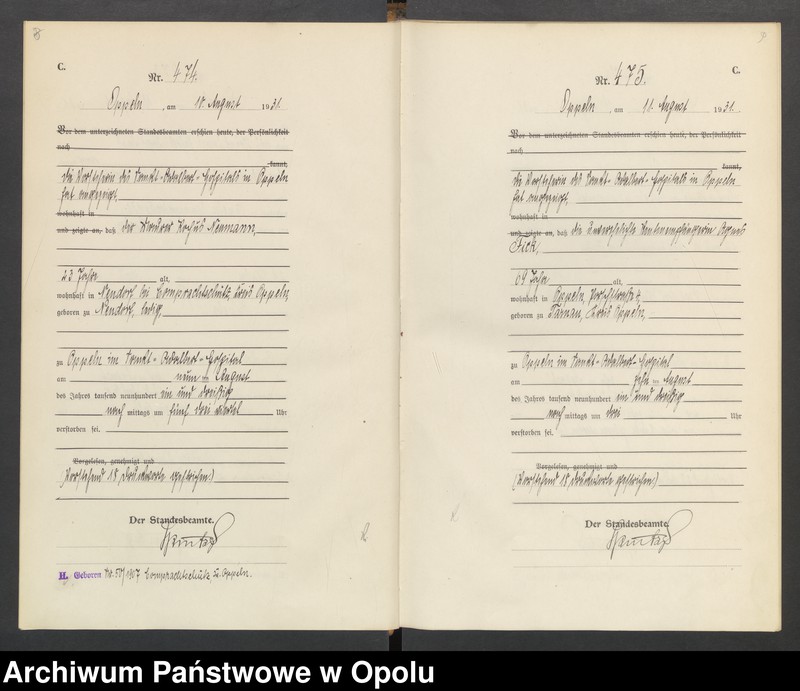 C.
Nr. 474.
Oppeln, am 10. August 1931.
Vor dem unterzeichneten Standesbeamten erschien heute, der Persönlichkeit
nach
kannt,
die Vorsteherin des Sankt-Adalbert-Hospitals in Oppeln
hat angezeigt,
wohnhaft in
und zeigte an, daß der Neumann,
23 Jahre alt,
wohnhaft in Neudorf bei Comprachtschütz, Kreis Oppeln,
geboren zu Neudorf, ledig,
zu Oppeln im Sankt-Adalbert-Hospital
am neun ten August
des Jahres tausend neunhundert ein und dreißig
nach mittags um fünf drei viertel Uhr
verstorben sei.
Vorgelesen, genehmigt und
(Vorstehend 18 Druckworte gestrichen.)
Der Standesbeamte.
H. Geboren Nr. 1907 Comprachtschütz, Kr. Oppeln.
C.
Nr. 475.
Oppeln, am 11. August 1931.
Vor dem unterzeichneten Standesbeamten erschien heute, der Persönlichkeit
nach
kannt,
die Vorsteherin des Sankt-Adalbert-Hospitals in Oppeln
hat angezeigt,
wohnhaft in
und zeigte an, daß die unverehelichte Rentenempfängerin Agnes
69 Jahre alt,
wohnhaft in Oppeln,
geboren zu Tarnau, Kreis Oppeln,
zu Oppeln im Sankt-Adalbert-Hospital
am zehn ten August
des Jahres tausend neunhundert ein und dreißig
nach mittags um drei Uhr
verstorben sei.
Vorgelesen, genehmigt und
(Vorstehend 18 Druckworte gestrichen.)
Der Standesbeamte.
Archiwum Państwowe w Opolu